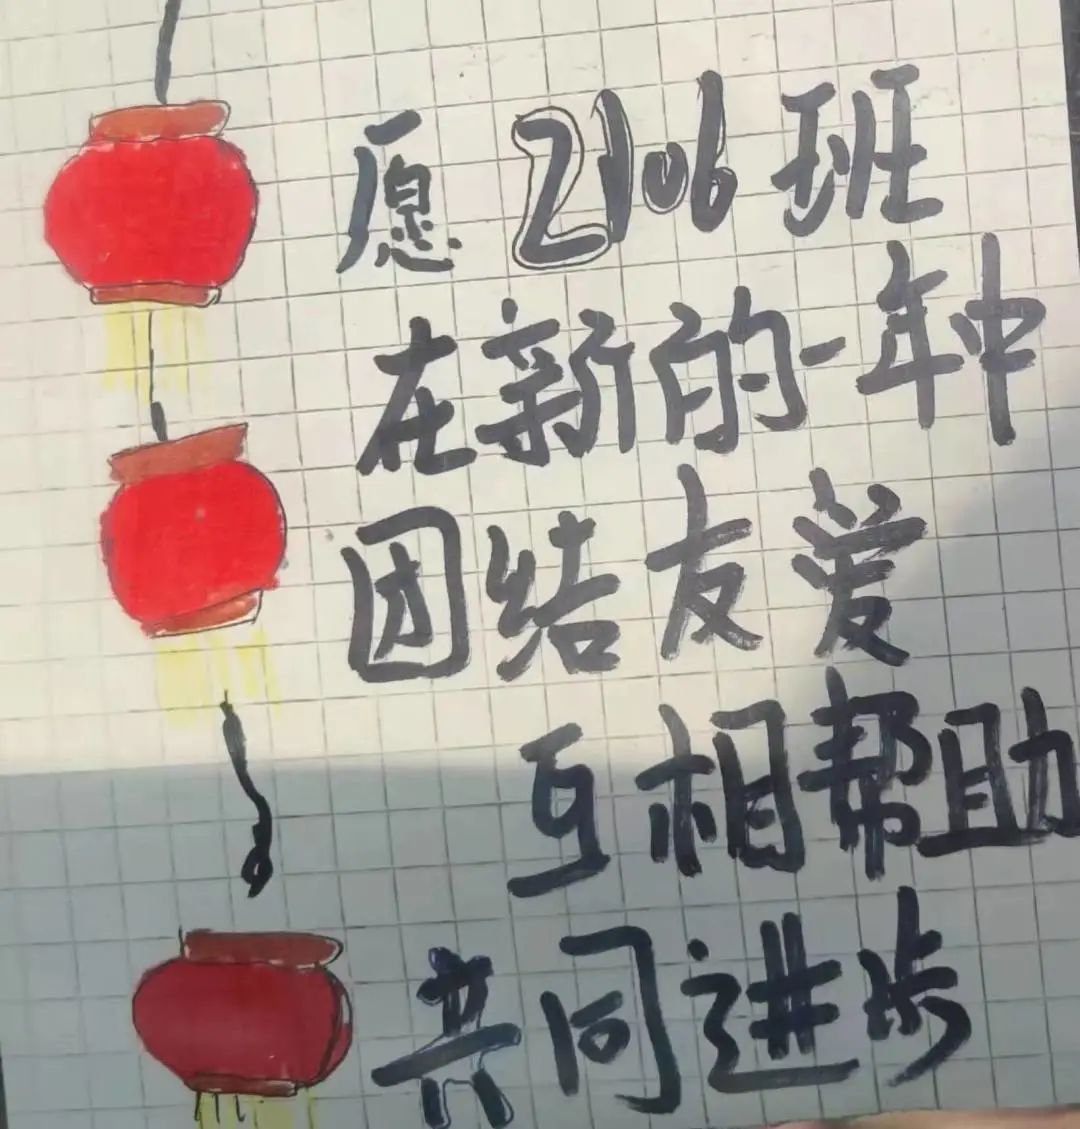 愿2106班
在新的一年中
团结友爱
互相帮助
共同进步